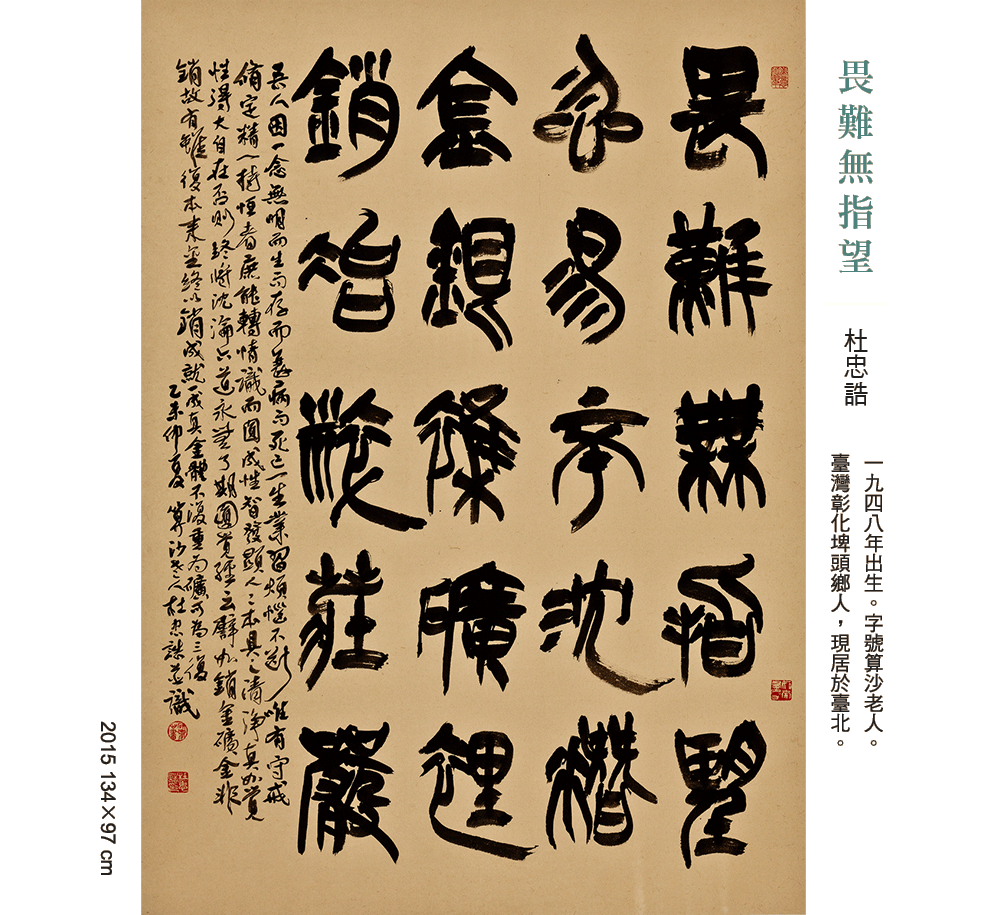 畏難無指望
杜忠誥
一九四八年出生。字號算沙老人。
臺灣彰化埤頭鄉人，現居於臺北。
畏難無指望
易沈潛
金銀礦裡
銷冶莊嚴
吾人因一念無明而生而存而衰病而死亡一生業習煩惱不斷唯有守戒
脩定精一持恒者庶能轉情識而圓成性智發顯人人本具之清淨真如覺
性得大自在否則終將沈淪六道永無了期圓覺經云譬如銷金礦金非
銷故有雖復本來金終以銷成就一成真金體不復重為礦可為三復
乙未仲夏 算沙老人杜忠誥並識
2015 134×97 cm